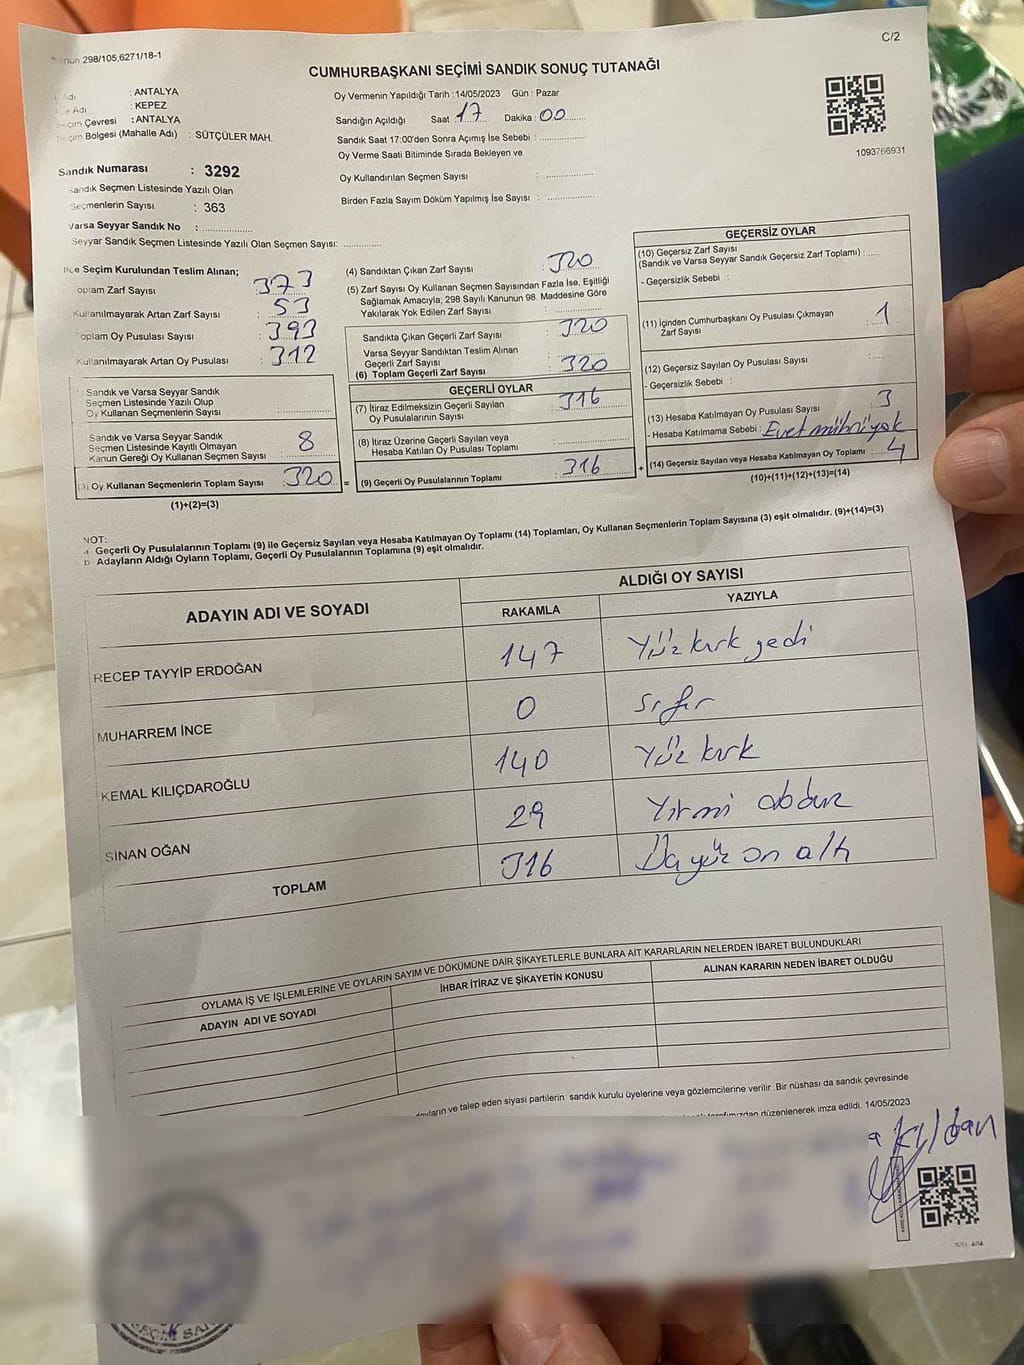 C/2
298/105,6271/18-1
CUMHURBAŞKANI SEÇİMİ SANDIK SONUÇ TUTANAĞI
: ANTALYA
: KEPEZ
: ANTALYA
Bölgesi (Mahalle Adı) : SÜTÇÜLER MAH.
Oy Vermenin Yapıldığı Tarih :14/05/2023 Gün : Pazar
Sandığın Açıldığı Saat : 17 Dakika : 00
Sandık Saat 17:00'den Sonra Açımış İse Sebebi :
Oy Verme Saati Bitiminde Sırada Bekleyen ve
Oy Kullandırılan Seçmen Sayısı :
Birden Fazla Sayım Döküm Yapılmış İse Sayısı :
1093766931
Sandık Numarası : 3292
Sandık Seçmen Listesinde Yazılı Olan
Seçmenlerin Sayısı : 363
Varsa Seyyar Sandık No :
Seyyar Sandık Seçmen Listesinde Yazılı Olan Seçmen Sayısı:
İlçe Seçim Kurulundan Teslim Alınan;
Toplam Zarf Sayısı : 373
Kullanılmayarak Artan Zarf Sayısı : 53
Toplam Oy Pusulası Sayısı : 393
Kullanılmayarak Artan Oy Pusulası : 312
Sandık ve Varsa Seyyar Sandık
Seçmen Listesinde Yazılı Olup
Oy Kullanan Seçmenlerin Sayısı :
Sandık ve Varsa Seyyar Sandık
Seçmen Listesinde Kayıtlı Olmayan
Kanun Gereği Oy Kullanan Seçmen Sayısı : 8
(3) Oy Kullanan Seçmenlerin Toplam Sayısı : 320 =
(1)+(2)=(3)
(4) Sandıktan Çıkan Zarf Sayısı : 320
(5) Zarf Sayısı Oy Kullanan Seçmen Sayısından Fazla İse, Eşitliği
Sağlamak Amacıyla; 298 Sayılı Kanunun 98. Maddesine Göre
Yakılarak Yok Edilen Zarf Sayısı :
Sandıkta Çıkan Geçerli Zarf Sayısı : 320
Varsa Seyyar Sandıktan Teslim Alınan
Geçerli Zarf Sayısı :
(6) Toplam Geçerli Zarf Sayısı : 320
GEÇERLİ OYLAR
(7) İtiraz Edilmeksizin Geçerli Sayılan
Oy Pusulalarının Sayısı : 316
(8) İtiraz Üzerine Geçerli Sayılan veya
Hesaba Katılan Oy Pusulası Toplamı :
(9) Geçerli Oy Pusulalarının Toplamı : 316 +
GEÇERSİZ OYLAR
(10) Geçersiz Zarf Sayısı
(Sandık ve Varsa Seyyar Sandık Geçersiz Zarf Toplamı) :
- Geçersizlik Sebebi :
(11) İçinden Cumhurbaşkanı Oy Pusulası Çıkmayan
Zarf Sayısı : 1
(12) Geçersiz Sayılan Oy Pusulası Sayısı :
- Geçersizlik Sebebi :
(13) Hesaba Katılmayan Oy Pusulası Sayısı : 3
- Hesaba Katılmama Sebebi : Evet mührü yok
(14) Geçersiz Sayılan veya Hesaba Katılmayan Oy Toplamı : 4
(10)+(11)+(12)+(13)=(14)
NOT:
a Geçerli Oy Pusulalarının Toplamı (9) ile Geçersiz Sayılan veya Hesaba Katılmayan Oy Toplamı (14) Toplamları, Oy Kullanan Seçmenlerin Toplam Sayısına (3) eşit olmalıdır. (9)+(14)=(3)
b Adayların Aldığı Oyların Toplamı, Geçerli Oy Pusulalarının Toplamına (9) eşit olmalıdır.
ADAYIN ADI VE SOYADI
ALDIĞI OY SAYISI
RAKAMLA YAZIYLA
RECEP TAYYİP ERDOĞAN 147 Yüz kırk yedi
MUHARREM İNCE 0 Sıfır
KEMAL KILIÇDAROĞLU 140 Yüz kırk
SİNAN OĞAN 29 Yirmi dokuz
TOPLAM 316 Üçyüz on altı
OYLAMA İŞ VE İŞLEMLERİNE VE OYLARIN SAYIM VE DÖKÜMÜNE DAİR ŞİKAYETLERLE BUNLARA AİT KARARLARIN NELERDEN İBARET BULUNDUKLARI
ADAYIN ADI VE SOYADI İHBAR İTİRAZ VE ŞİKAYETİN KONUSU ALINAN KARARIN NEDEN İBARET OLDUĞU
ve talep eden siyasi partilerin sandık kurulu üyelerine veya gözlemcilerine verilir .Bir nüshası da sandık çevresinde
düzenlenerek imza edildi. 14/05/2023